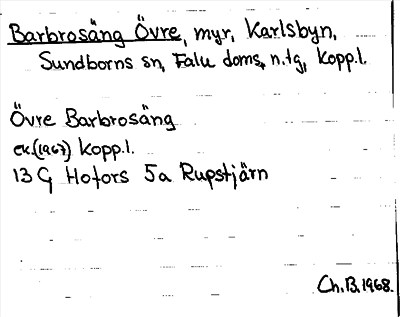 Barbrosäng Övre, myr, Karlsbyn,
Sundborns sn, Falu doms. n.tg, Kopp.l.
Övre Barbrosäng
ek.(1967) Kopp.l.
13 G Hofors 5a Rupstjärn
Ch.B.1968.